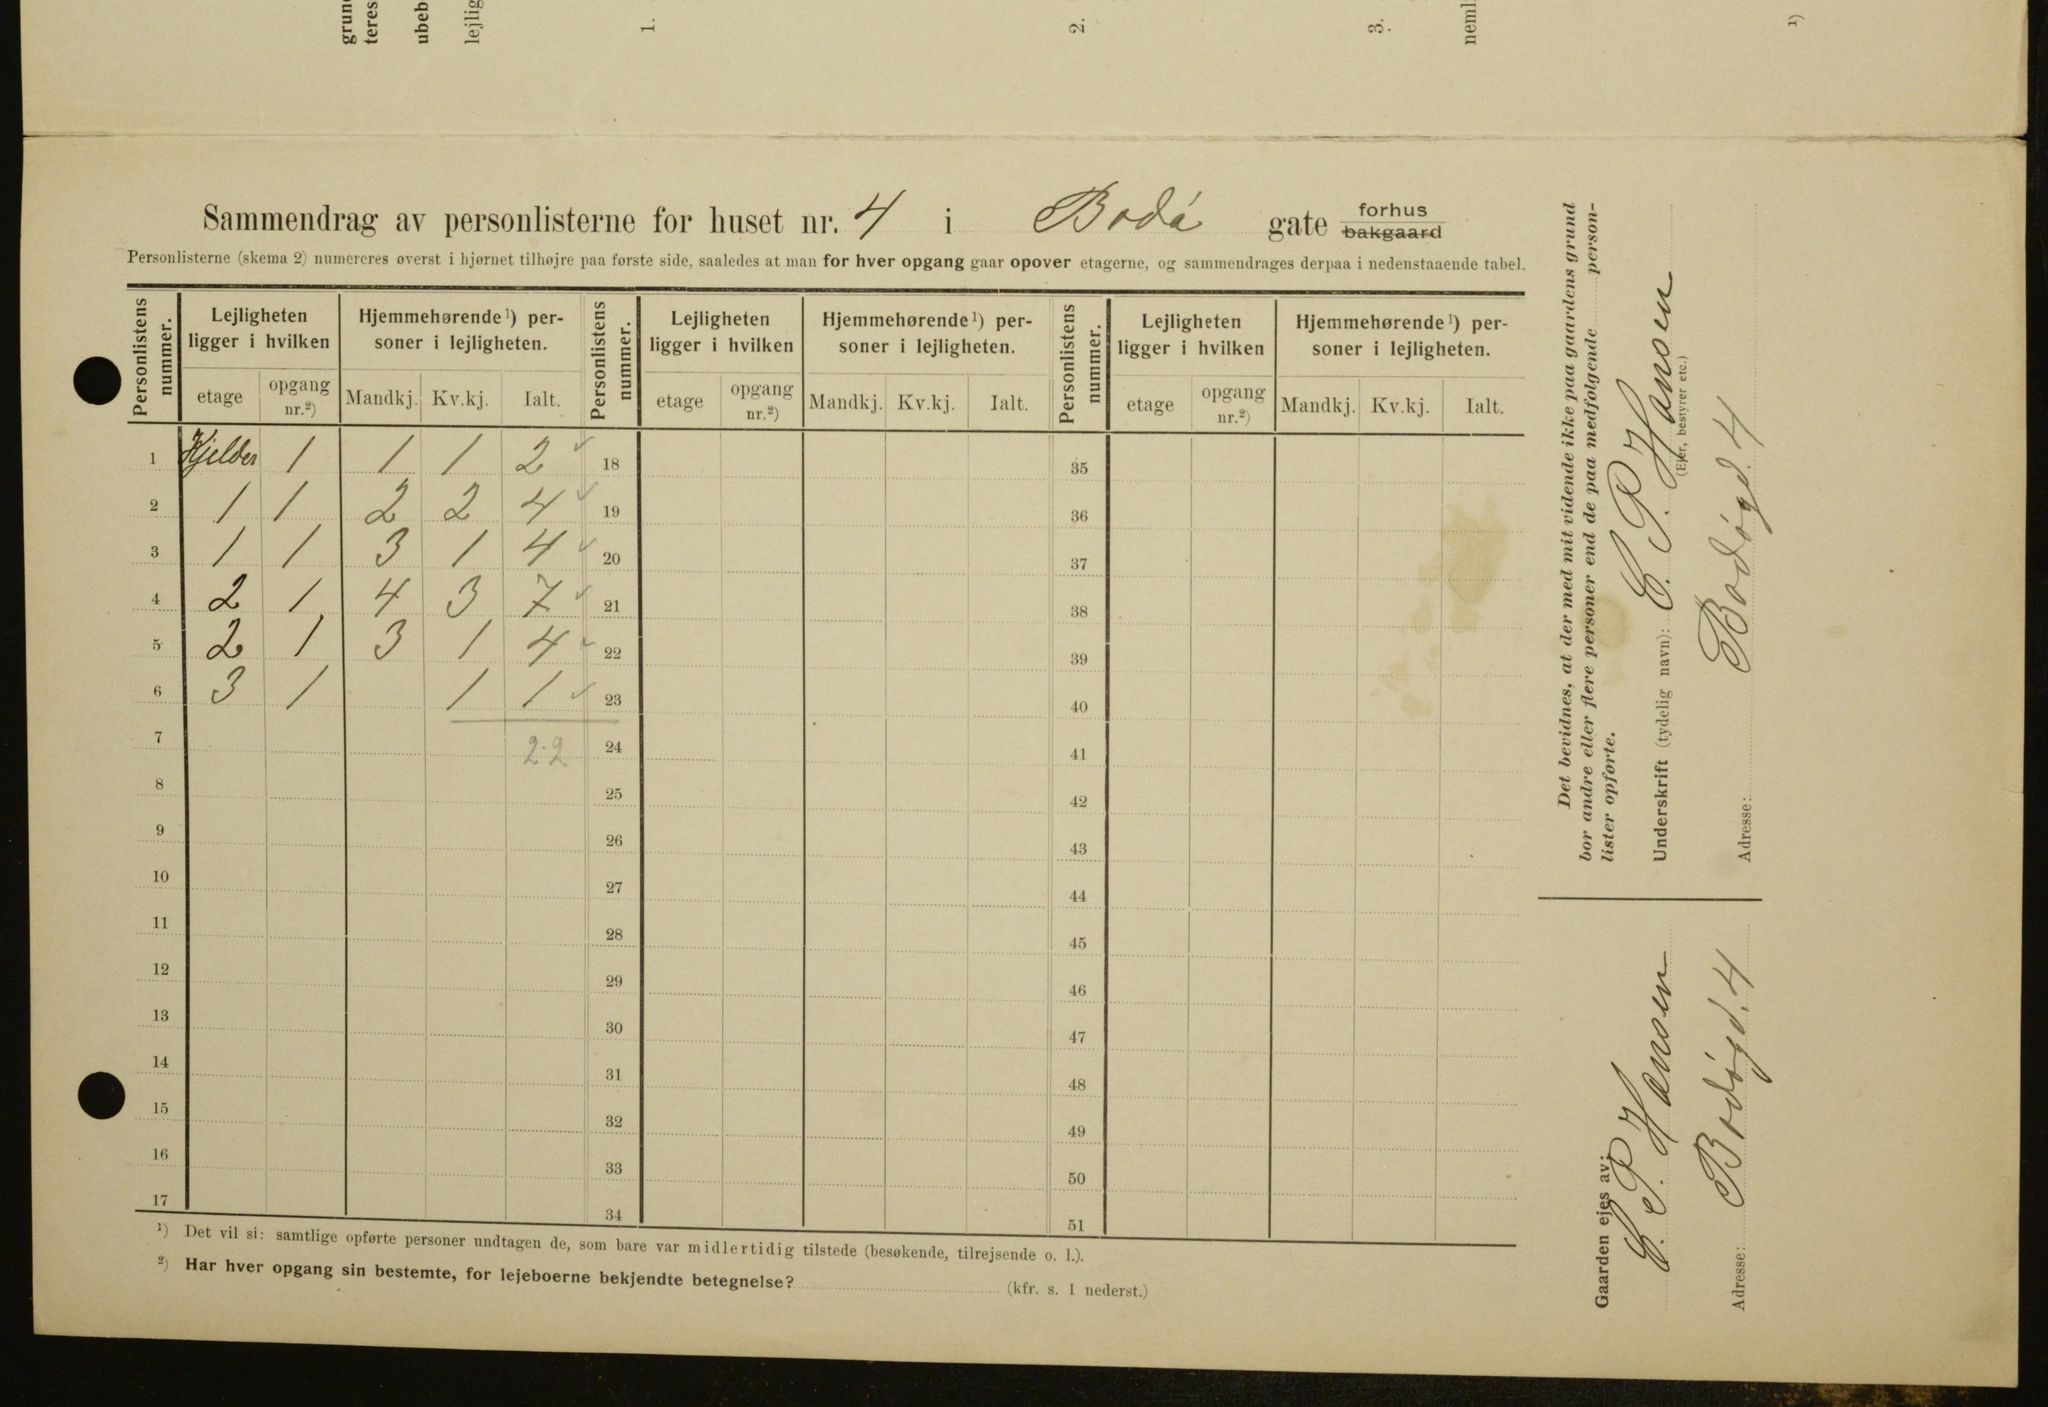 grun
teres
ubeb
lejlig
1.
2.
3.
neml
¹)
Sammendrag av personlisterne for huset nr. 4 i Bodó gate forhus
~~bakgaard~~
Personlisterne (skema 2) numereres øverst i hjørnet tilhøjre paa første side, saaledes at man for hver opgang gaar opover etagerne, og sammendrages derpaa i nedenstaaende tabel.
Personlistens nummer. | Lejligheten ligger i hvilken | Hjemmehørende ¹) personer i lejligheten. | Personlistens nummer. | Lejligheten ligger i hvilken | Hjemmehørende ¹) personer i lejligheten. | Personlistens nummer. | Lejligheten ligger i hvilken | Hjemmehørende ¹) personer i lejligheten.
etage | opgang nr.²) | Mandkj. | Kv.kj. | Ialt. | etage | opgang nr.²) | Mandkj. | Kv.kj. | Ialt. | etage | opgang nr.²) | Mandkj. | Kv.kj. | Ialt.
1 Kjelder 1 1 1 2 ✓ 18 35
2 1 1 2 2 4 ✓ 19 36
3 1 1 3 1 4 ✓ 20 37
4 2 1 4 3 7 ✓ 21 38
5 2 1 3 1 4 ✓ 22 39
6 3 1 1 1 ✓ 23 40
7 22 24 41
8 25 42
9 26 43
10 27 44
11 28 45
12 29 46
13 30 47
14 31 48
15 32 49
16 33 50
17 34 51
¹) Det vil si: samtlige opførte personer undtagen de, som bare var midlertidig tilstede (besøkende, tilrejsende o. l.).
²) Har hver opgang sin bestemte, for lejeboerne bekjendte betegnelse? (kfr. s. 1 nederst.)
Det bevidnes, at der med mit vidende ikke paa gaardens grund
bor andre eller flere personer end de paa medfølgende person-
lister opførte.
Underskrift (tydelig navn): E. P. Hansen
(Ejer, bestyrer etc.)
Adresse: Bodógd. 4
Gaarden ejes av: E. P. Hansen
Adresse: Bodógd. 4